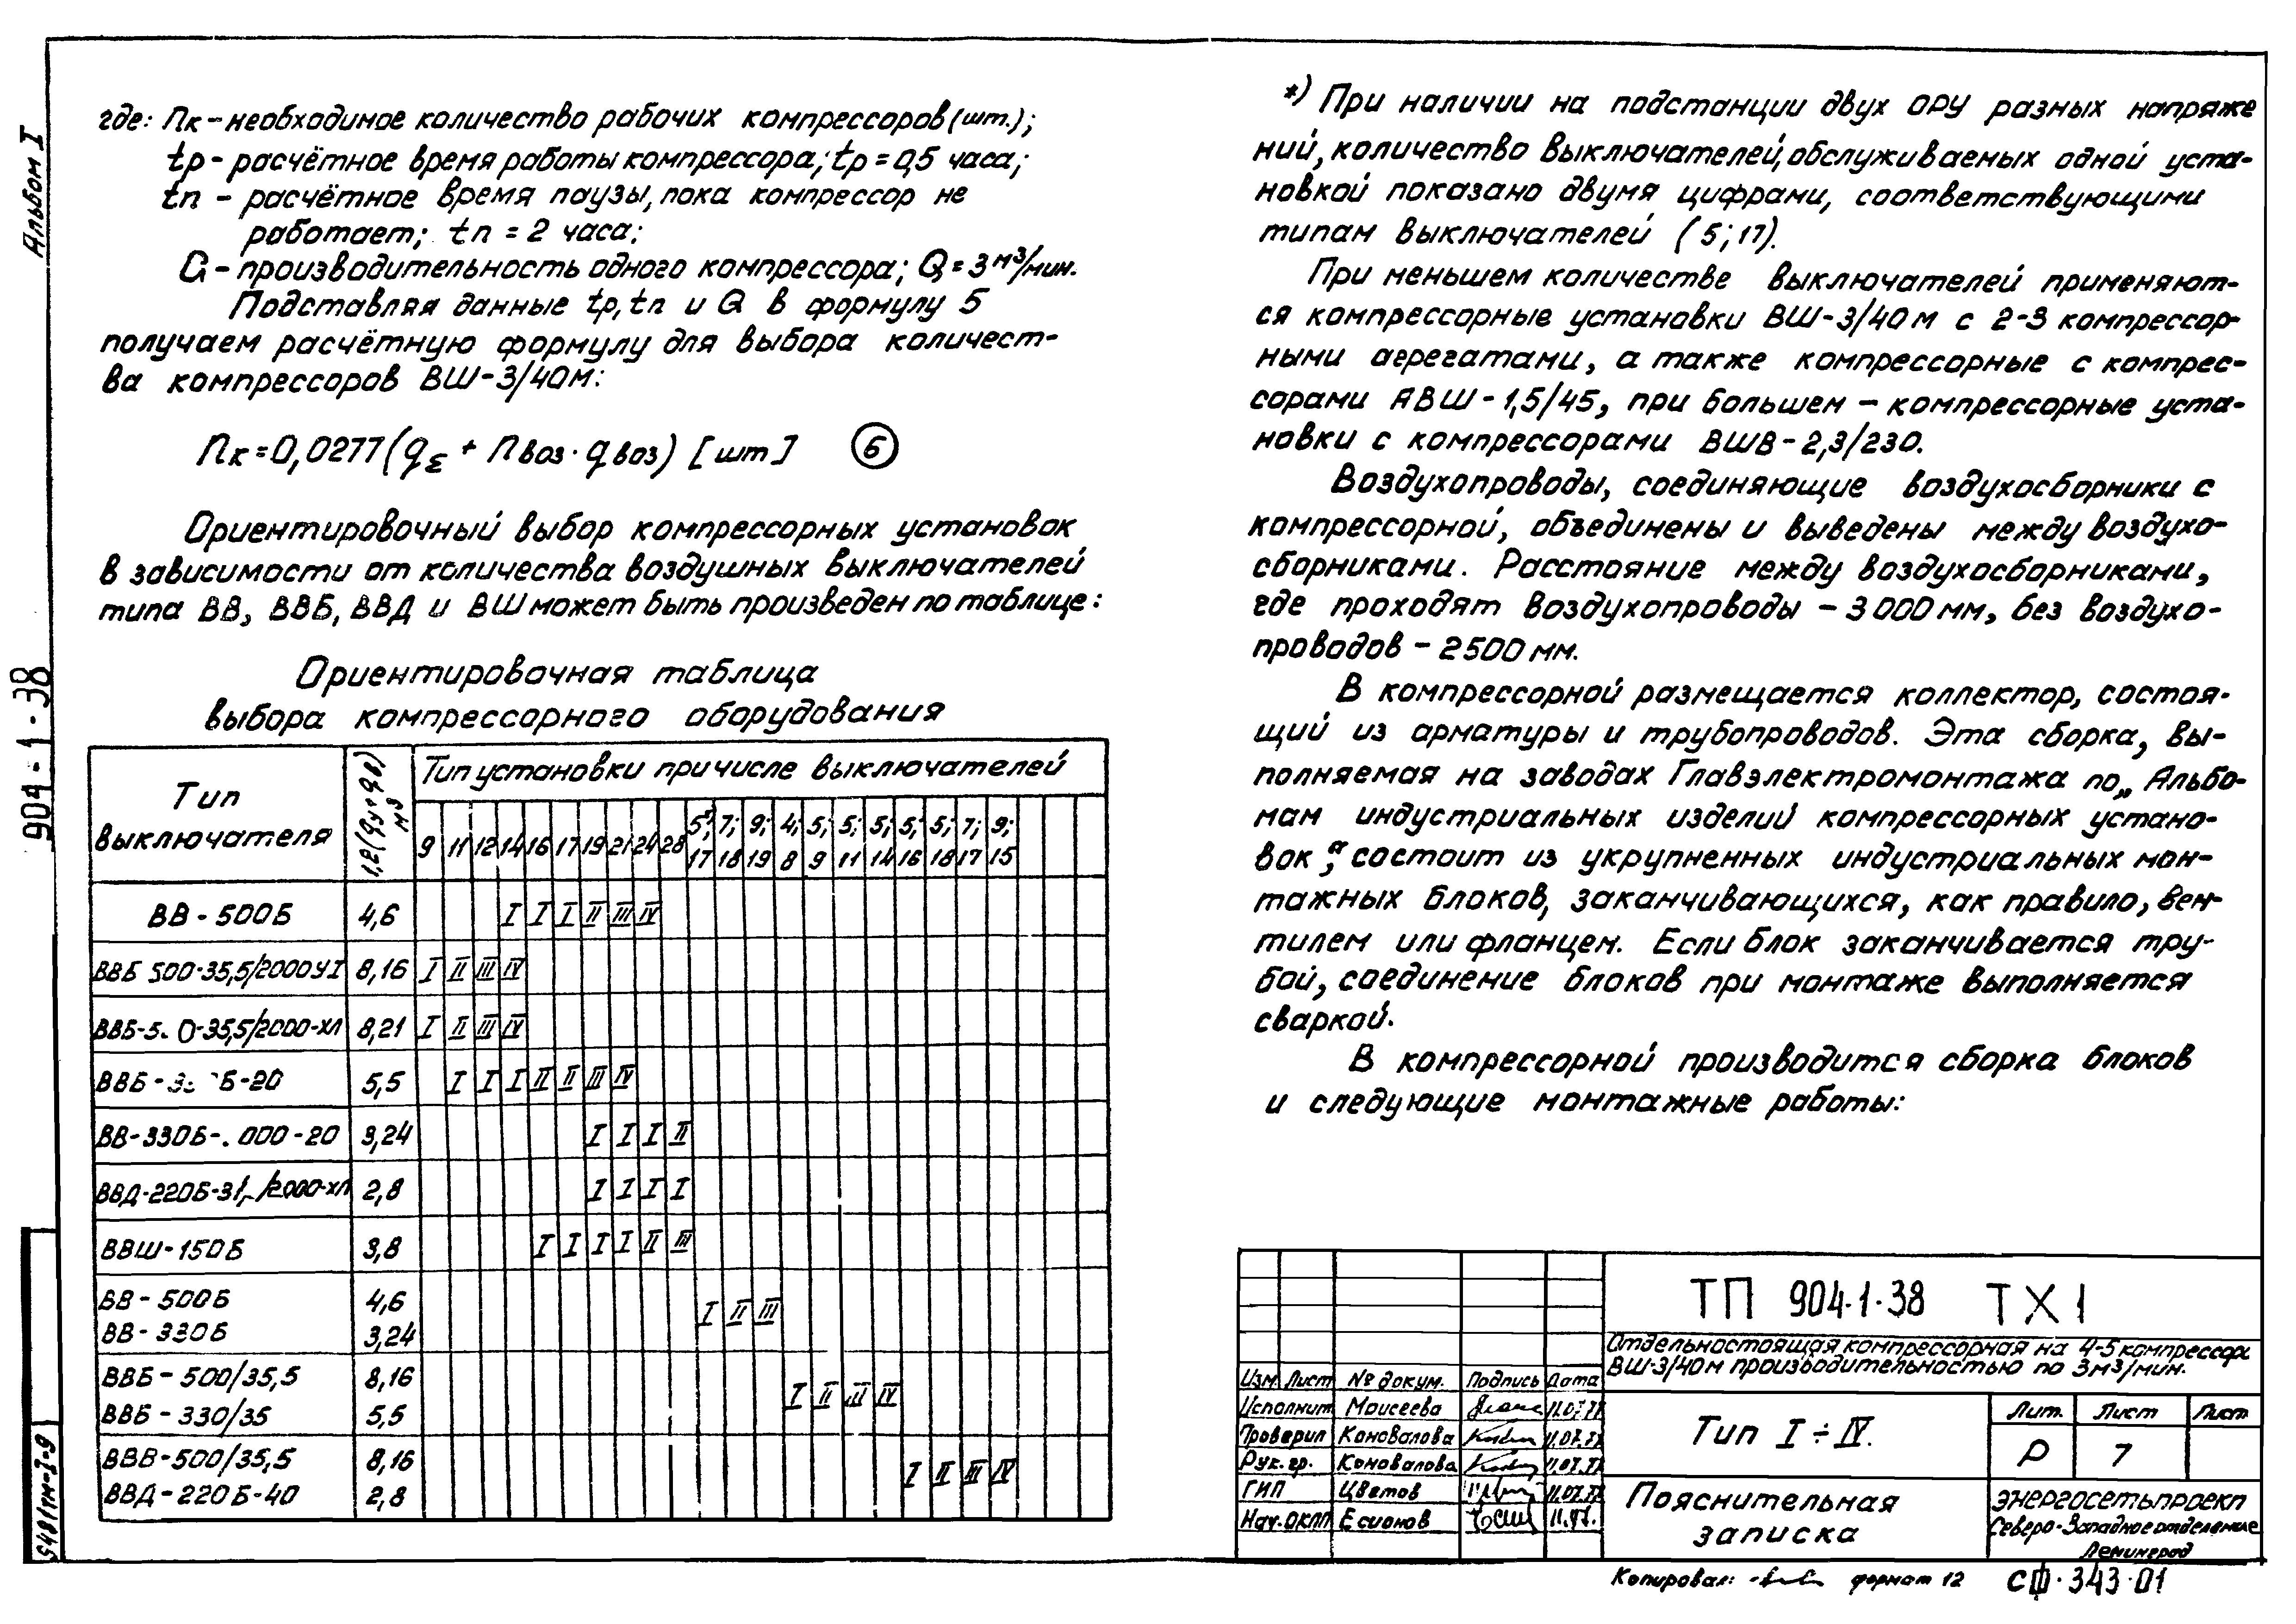 Альбом I
904-1-38
5481тм-I-9
где: Пк – необходимое количество рабочих компрессоров (шт.);
tp – расчётное время работы компрессора; tp = 0,5 часа;
tп – расчётное время паузы, пока компрессор не
работает; tп = 2 часа;
Q – производительность одного компрессора; Q = 3 м³/мин.
Подставляя данные tp, tп и Q в формулу 5
получаем расчётную формулу для выбора количест-
ва компрессоров ВШ-3/40м:
Пк = 0,0277 (qΣ + Пвоз · qвоз) [шт] 6
Ориентировочный выбор компрессорных установок
в зависимости от количества воздушных выключателей
типа ВВ, ВВБ, ВВД и ВШ может быть произведен по таблице:
Ориентировочная таблица
выбора компрессорного оборудования
Тип выключателя | 1,2(qу+qв) м³ | Тип установки при числе выключателей
9 | 11 | 12 | 14 | 16 | 17 | 19 | 21 | 24 | 28 | 5*); 17 | 7; 18 | 9; 19 | 4; 8 | 5; 9 | 5; 11 | 5; 14 | 5; 16 | 5; 18 | 7; 17 | 9; 15
ВВ-500Б | 4,6 | I I I II III IV
ВВБ 500-35,5/2000У1 | 8,16 | I II III IV
ВВБ-5. 0-35,5/2000-ХЛ | 8,21 | I II III IV
ВВБ-33 Б-20 | 5,5 | I I I II II III IV
ВВ-330Б-. 000-20 | 3,24 | I I I II
ВВД-220Б-31 /2000-ХЛ | 2,8 | I I I I
ВВШ-150Б | 3,8 | I I I I II III
ВВ-500Б | 4,6 | I II III
ВВ-330Б | 3,24
ВВБ-500/35,5 | 8,16 | I II III IV
ВВБ-330/35 | 5,5
ВВВ-500/35,5 | 8,16 | I II III IV
ВВД-220Б-40 | 2,8
*) При наличии на подстанции двух ОРУ разных напряже
ний, количество выключателей, обслуживаемых одной уста-
новкой показано двумя цифрами, соответствующими
типам выключателей (5; 17).
При меньшем количестве выключателей применяют-
ся компрессорные установки ВШ-3/40м с 2-3 компрессор-
ными агрегатами, а также компрессорные с компрес-
сорами АВШ-1,5/45, при большем – компрессорные уста-
новки с компрессорами ВШВ-2,3/230.
Воздухопроводы, соединяющие воздухосборники с
компрессорной, объединены и выведены между воздухо-
сборниками. Расстояние между воздухосборниками,
где проходят воздухопроводы – 3000 мм, без воздухо-
проводов – 2500 мм.
В компрессорной размещается коллектор, состоя-
щий из арматуры и трубопроводов. Эта сборка, вы-
полняемая на заводах Главэлектромонтажа по „Альбо-
мам индустриальных изделий компрессорных устано-
вок“, состоит из укрупненных индустриальных мон-
тажных блоков, заканчивающихся, как правило, вен-
тилем или фланцем. Если блок заканчивается тру-
бой, соединение блоков при монтаже выполняется
сваркой.
В компрессорной производится сборка блоков
и следующие монтажные работы:
ТП 904-1-38 ТХ1
Отдельностоящая компрессорная на 4-5 компрессор.
ВШ-3/40м производительностью по 3м³/мин.
Изм. Лист № докум. Подпись Дата
Исполнит. Моисеева
Проверил Коновалова
Рук. гр. Коновалова
ГИП Цветов
Нач. ОКЛП Есионов
Тип I ÷ IV.
Лит. Лист Лист
Р 7
Пояснительная
записка
Энергосетьпроект
Северо-Западное отделение
Ленинград
Копировал: формат 12 СФ-343-01